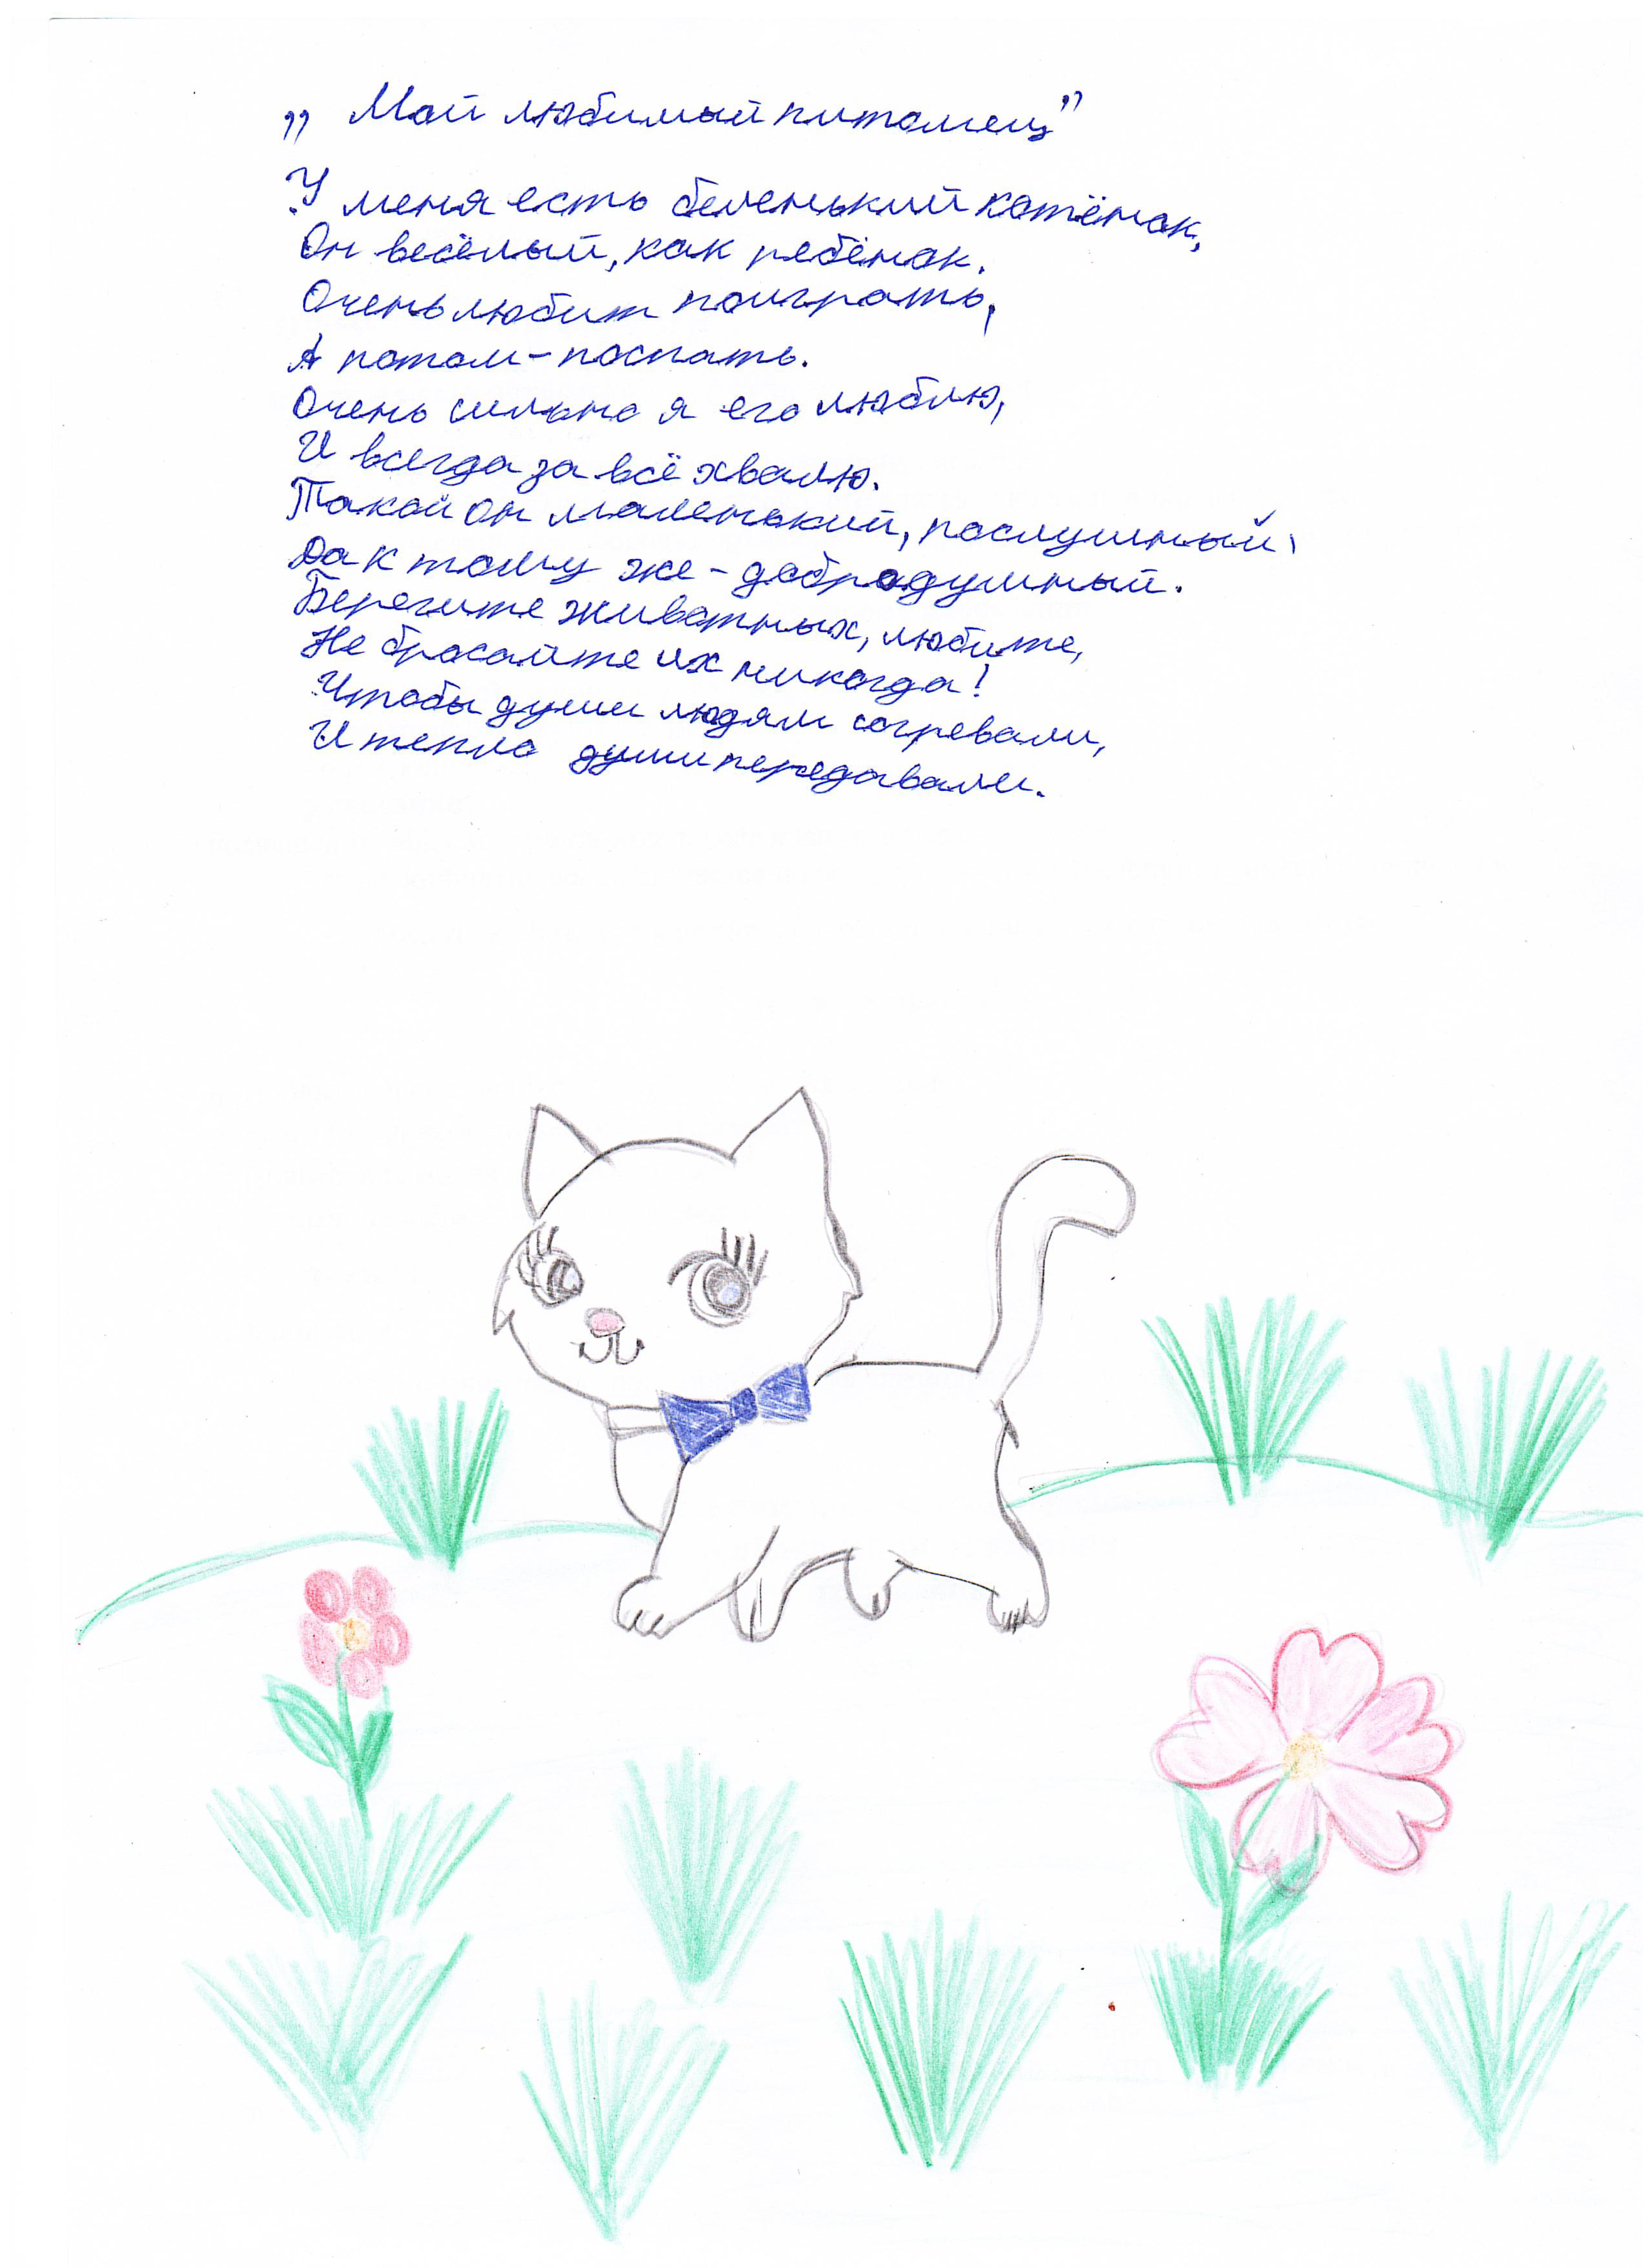 „Мой любимый питомец”
У меня есть беленький котёнок,
Он весёлый, как ребёнок.
Очень любит поиграть,
А потом - поспать.
Очень сильно я его люблю,
И всегда за всё хвалю.
Такой он маленький, послушный,
Да к тому же - добродушный.
Берегите животных, любите,
Не бросайте их никогда!
Чтобы души людям согревали,
И тепло души передавали.